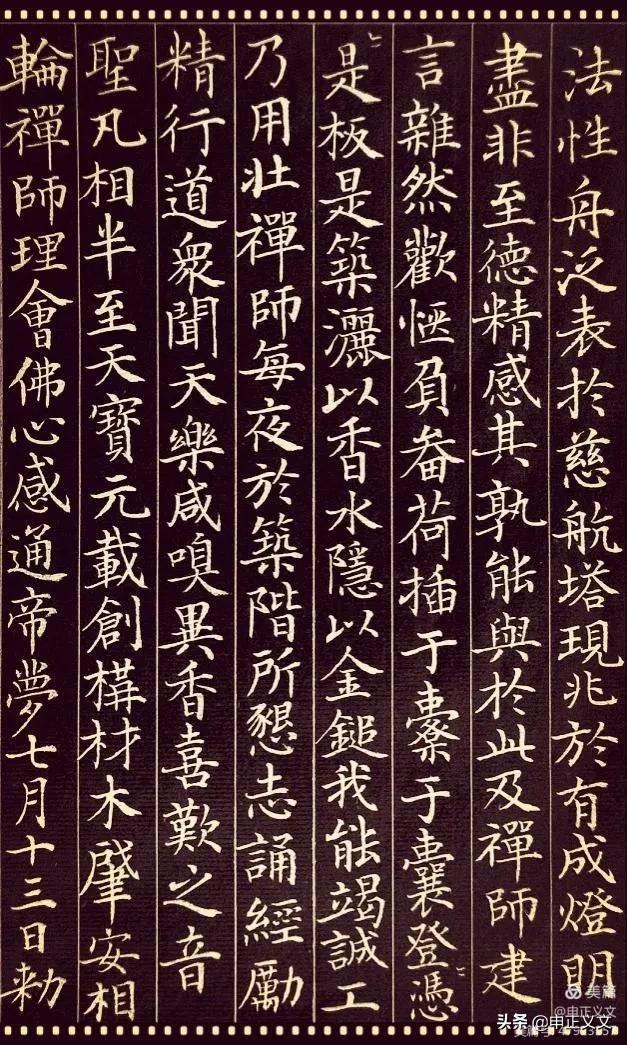 法性舟泛表於慈航塔現兆於有成燈明
盡非至德精感其孰能與於此及禪師建
言雜然歡愜負畚荷插于橐于囊登〻憑
〻是板是築灑以香水隱以金鎚我能竭誠工
乃用壯禪師每夜於築階所懇志誦經勵
精行道衆聞天樂咸嗅異香喜歎之音
聖凡相半至天寶元載創構材木肇安相
輪禪師理會佛心感通帝夢七月十三日勅
美篇
@申正义文
头条 @申正义文